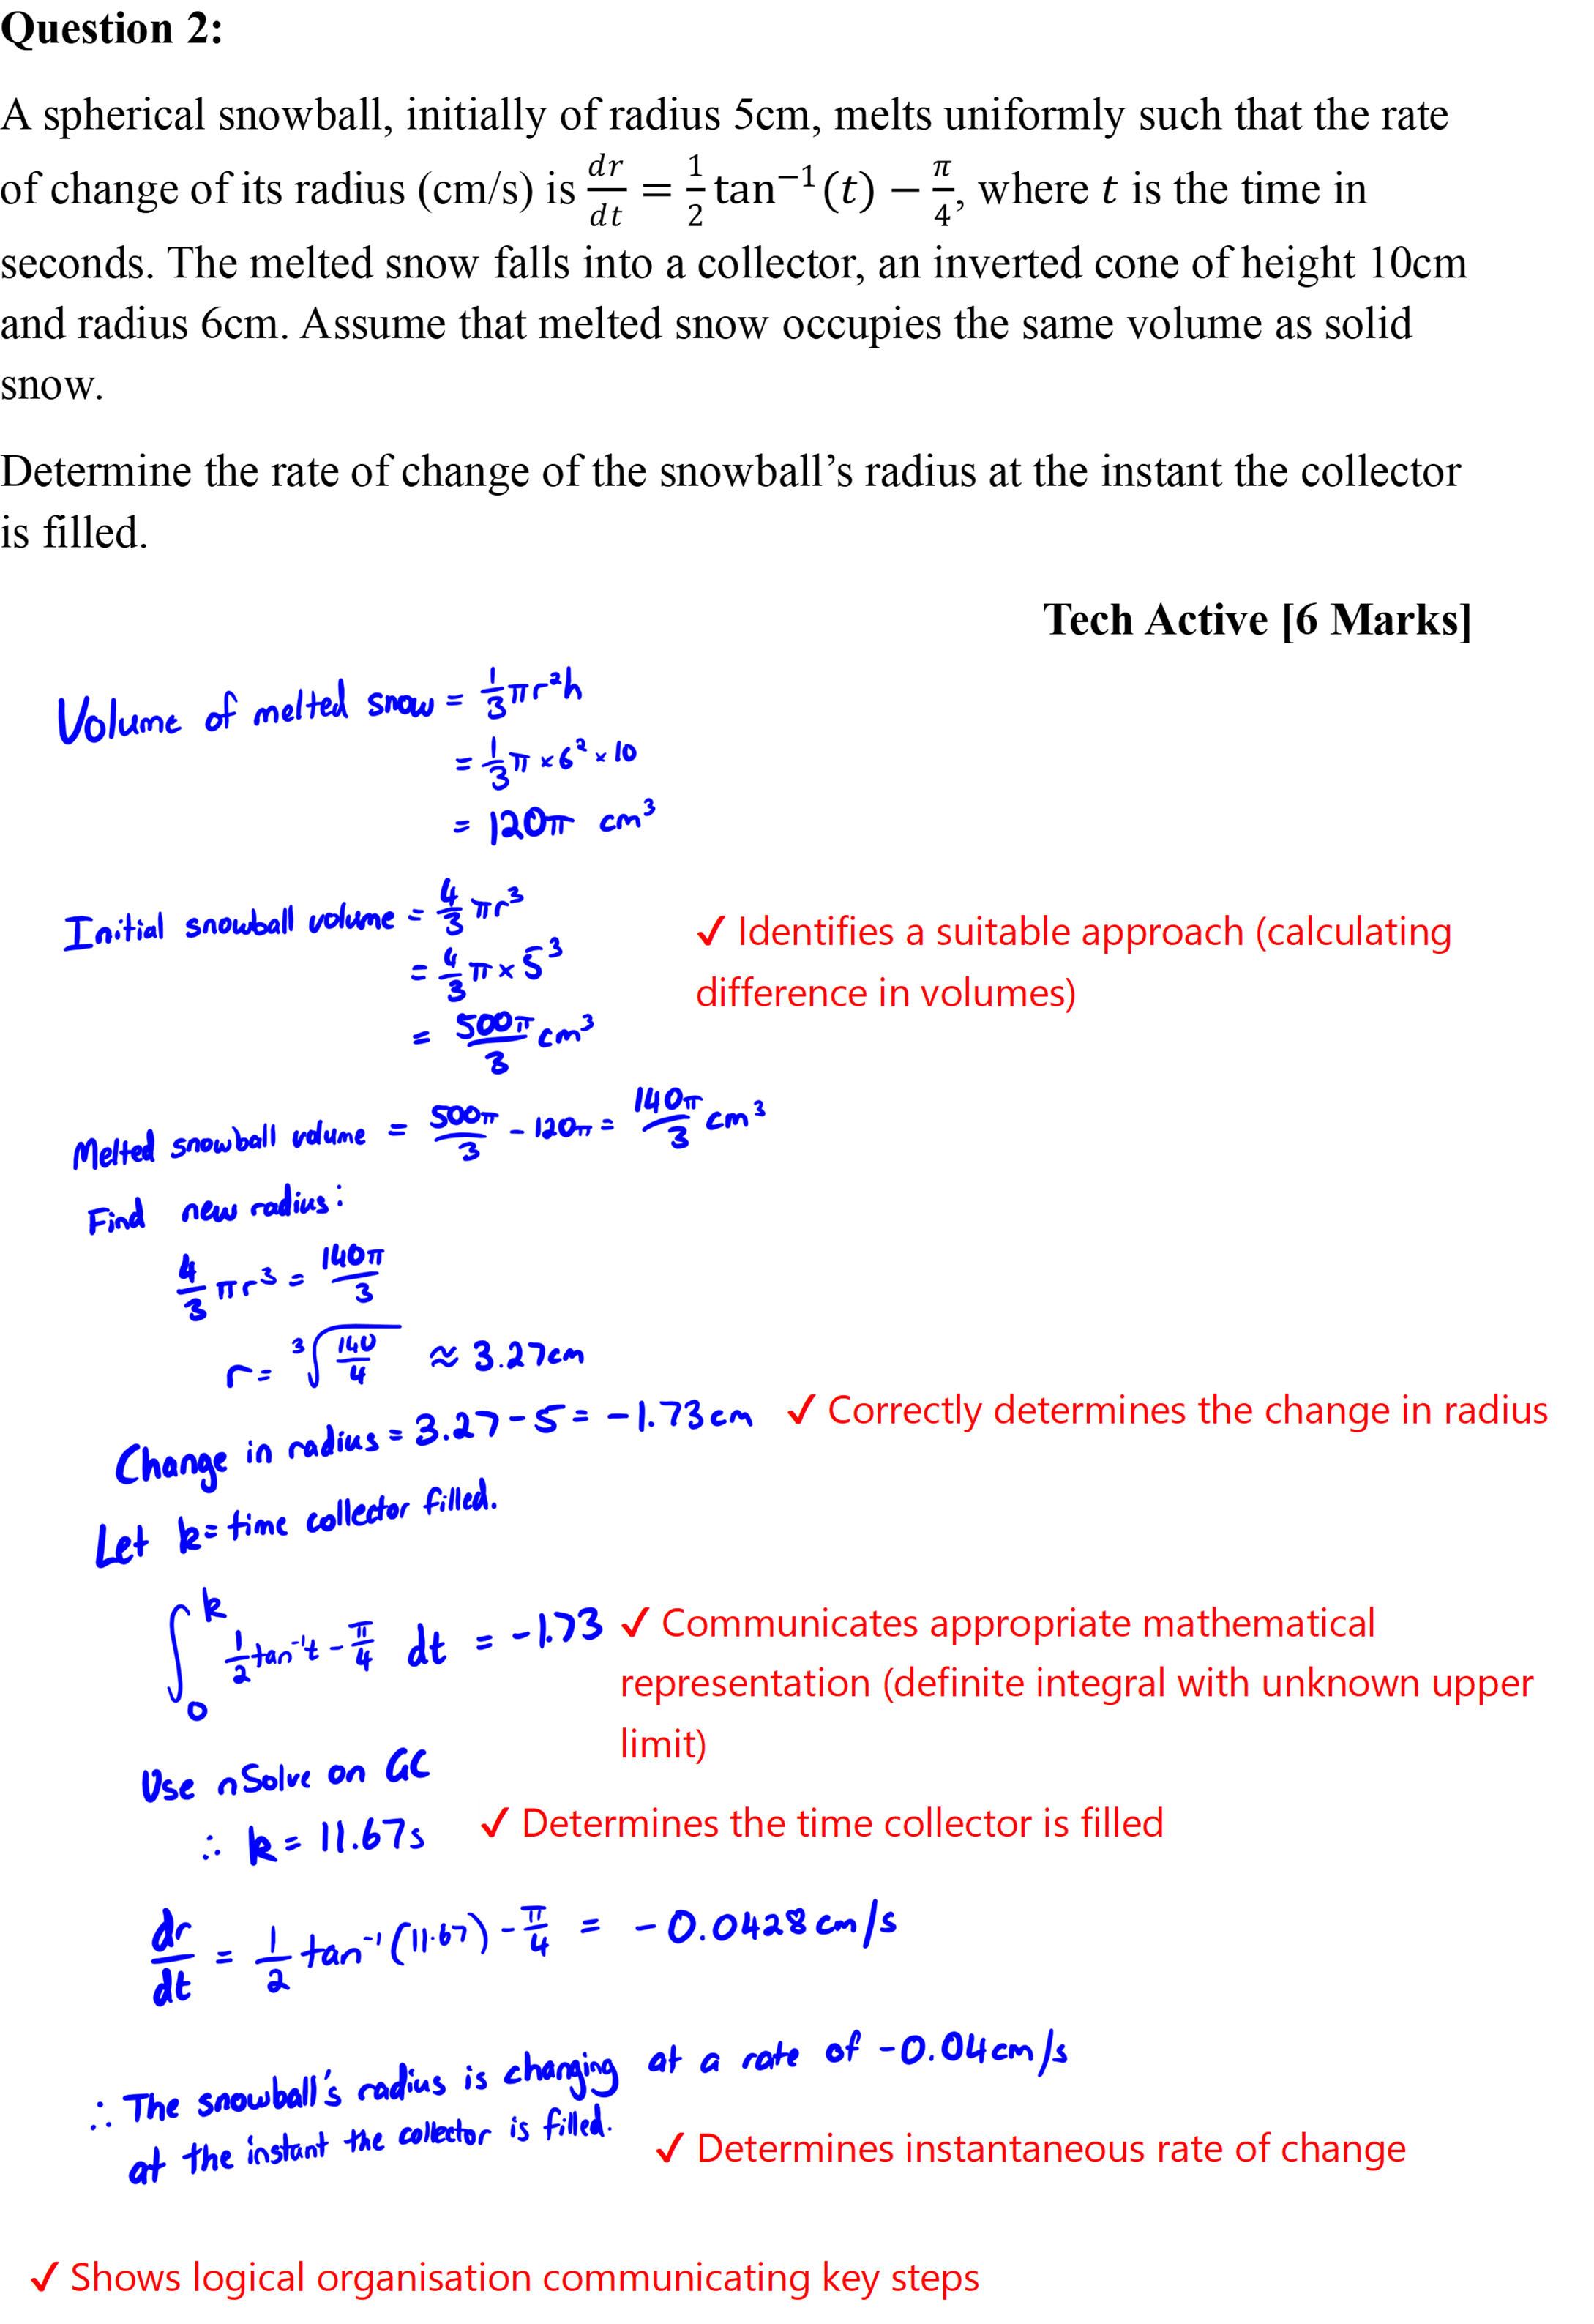 Question 2:
A spherical snowball, initially of radius 5cm, melts uniformly such that the rate
of change of its radius (cm/s) is dr/dt = 1/2 tan⁻¹(t) − π/4, where t is the time in
seconds. The melted snow falls into a collector, an inverted cone of height 10cm
and radius 6cm. Assume that melted snow occupies the same volume as solid
snow.
Determine the rate of change of the snowball’s radius at the instant the collector
is filled.
Tech Active [6 Marks]
Volume of melted snow = 1/3 πr²h
= 1/3 π × 6² × 10
= 120π cm³
Initial snowball volume = 4/3 πr³
= 4/3 π × 5³
= 500π/3 cm³
✓ Identifies a suitable approach (calculating
difference in volumes)
Melted snowball volume = 500π/3 − 120π = 140π/3 cm³
Find new radius:
4/3 πr³ = 140π/3
r = ³√(140/4) ≈ 3.27cm
Change in radius = 3.27 − 5 = −1.73cm ✓ Correctly determines the change in radius
Let k = time collector filled.
∫₀ᵏ 1/2 tan⁻¹t − π/4 dt = −1.73 ✓ Communicates appropriate mathematical
representation (definite integral with unknown upper
limit)
Use nSolve on GC
∴ k = 11.67s ✓ Determines the time collector is filled
dr/dt = 1/2 tan⁻¹(11.67) − π/4 = −0.0428cm/s
∴ The snowball's radius is changing at a rate of −0.04cm/s
at the instant the collector is filled.
✓ Determines instantaneous rate of change
✓ Shows logical organisation communicating key steps